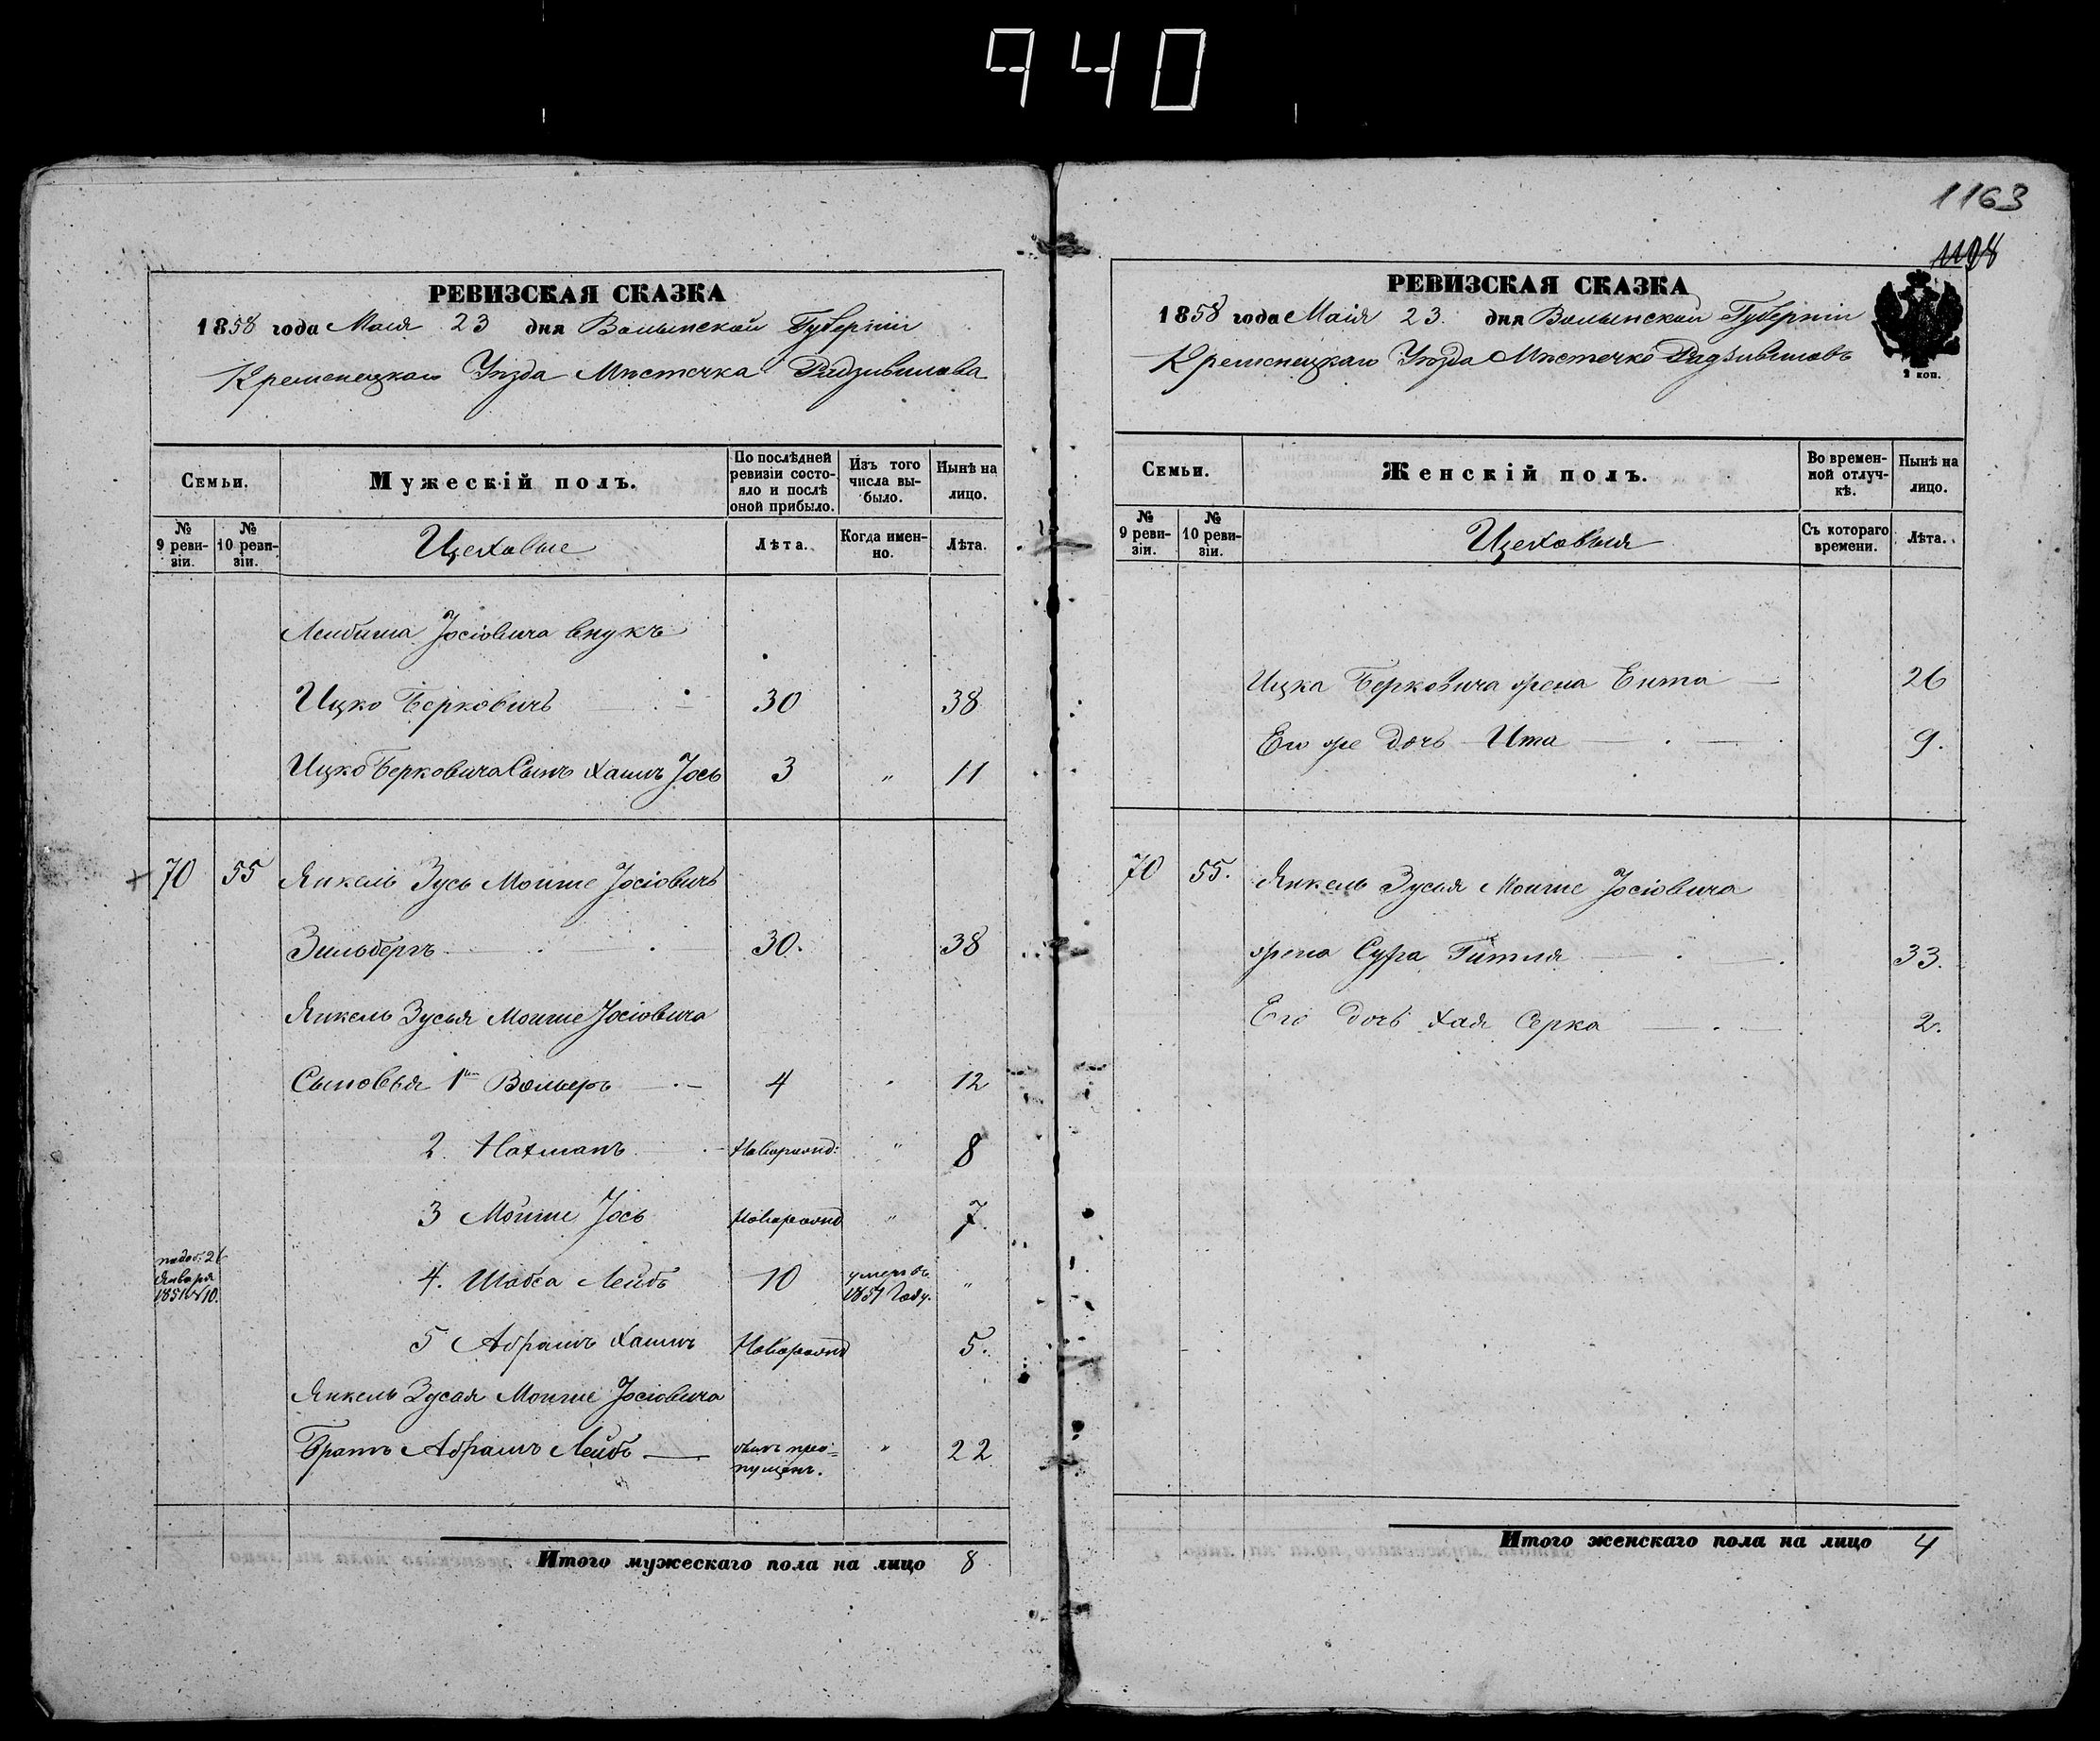 940
1163
1198
РЕВИЗСКАЯ СКАЗКА
1858 года Маія 23 дня Волынской Губерніи
Кременецкаго Уѣзда Мѣстечка Радзивилова
Семьи.
Мужескій полъ.
По послѣдней ревизіи состояло и послѣ оной прибыло.
Изъ того числа выбыло.
Нынѣ на лицо.
№ 9 ревизіи.
№ 10 ревизіи.
Цеховые
Лѣта.
Когда именно.
Лѣта.
Лейбиша Іосіовича внукъ
Ицко Берковичъ 30 38
Ицко Берковича Сынъ Хаимъ Іось 3 " 11
70 55 Янкель Зусь Мошше Іосіовичъ
Зильберъ 30. 38
Янкель Зусья Мошше Іосіовича
Сыновья 1й Вольеръ 4 " 12
2. Нахманъ Новорожд: " 8
3 Мошше Іось Новорожд " 7.
Января
1851 №10.
4. Шабса Лейбъ 10 умеръ въ 1851 Году. "
5 Абрамъ Хаимъ Новорожд 5.
Янкель Зусая Мошше Іосіовича
Братъ Абрамъ Лейбъ былъ пропущенъ. " 22
Итого мужескаго пола на лицо 8
РЕВИЗСКАЯ СКАЗКА
1858 года Маія 23. дня Волынской Губерніи
Кременецкаго Уѣзда Мѣстечко Радзивиловъ
2 коп.
Семьи.
Женскій полъ.
Во временной отлучкѣ.
Нынѣ на лицо.
№ 9 ревизіи.
№ 10 ревизіи.
Цеховыя
Съ котораго времени.
Лѣта.
Ицка Берковича жена Ента 26
Его же дочь Ита 9.
70 55. Янкель Зусья Мошше Іосіовича
жена Сура Гитля 33.
Его дочь Хая Серка 2.
Итого женскаго пола на лицо 4